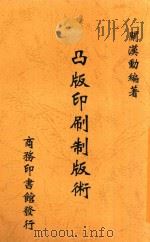 關漢勳編著
凸版印刷制版術
商務印書館發行